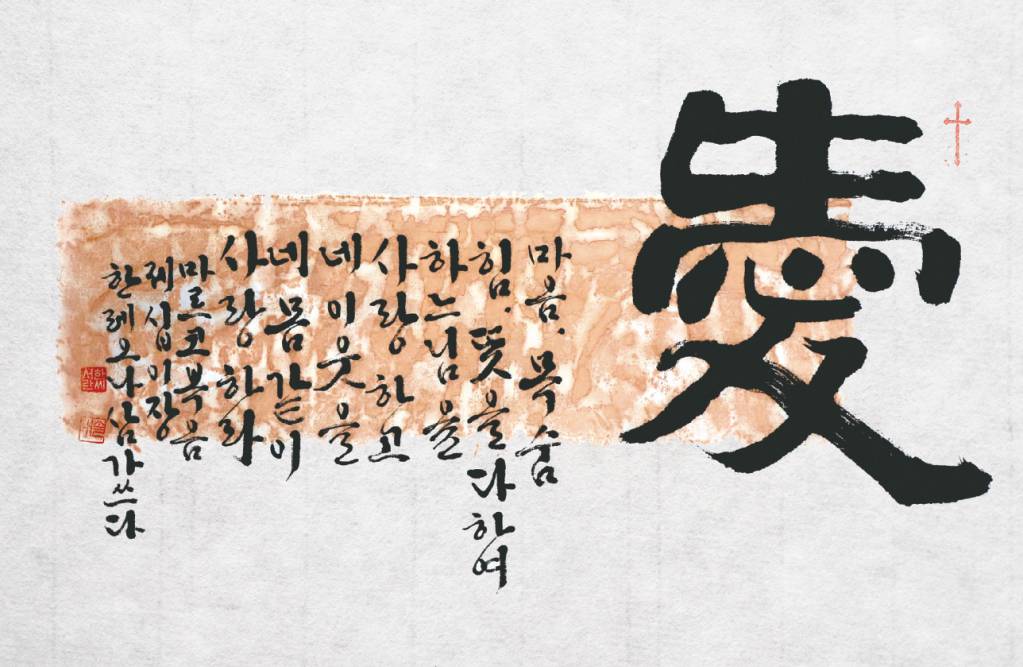 愛
마음. 목숨
힘. 뜻을 다하여
하느님을
사랑하고
네 이웃을
네 몸같이
사랑하라
마르코복음
제십이장
한레오나삼가쓰다